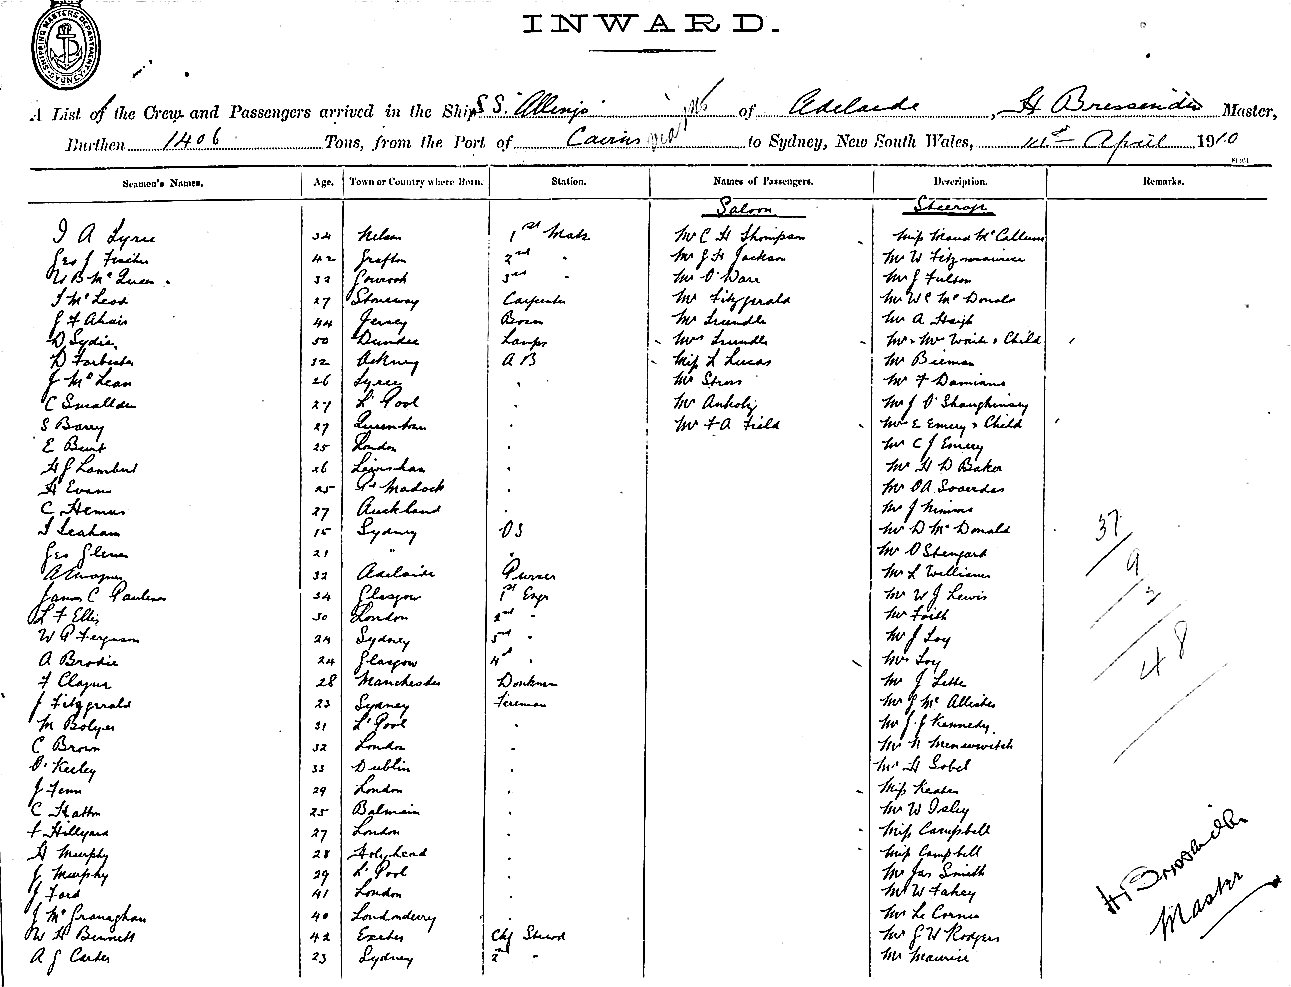 SHIPPING MASTERS DEPARTMENT SYDNEY
INWARD.
A List of the Crew and Passengers arrived in the Ship S.S. of Adelaide, H Master,
Burthen 1406 Tons, from the Port of Cairns to Sydney, New South Wales, 1st April 1910
Seamen's Names. Age. Town or Country where Born. Station. Names of Passengers. Description. Remarks.
Saloon Steerage
A 34 Nelson 1st Mate Mr C H Thompson Miss Maud McCallum
Geo J Fischer 42 Grafton 2nd " Mr J H Jackson Mr W Fitzmaurice
W B McQueen 32 Gourock 3rd Mr O'Dare Mr J Fulton
McLeod 27 Stornoway Carpenter Mr Fitzgerald Mr W C McDonald
J F 44 Jersey Bosun Mr Trundle Mr A Haigh
D 50 Dundee Lamps Mrs Trundle Mr & Mrs Waite & Child
D Forbester 32 A B Miss L Lucas Mr Bieman
J McLean 26 Tyree " Mr Mr F Damiano
C Smallden 27 L'Pool " Mr Mr J O'Shaughinsey
S Barry 27 " Mr F A Field Mrs E Emery & Child
E Bunt 25 London " Mr C J Emery
H J Lambert 26 Lewisham " Mr H D Baker
H Evans 25 Pt Madock " Mr
C Hemus 27 Auckland " Mr J Nimmo
Leaham 15 Sydney OS Mr D McDonald
37
Geo 21 " " Mr O
A 32 Adelaide Purser Mr L Williams
9
James C 34 Glasgow 1st Engr Mr W J Lewis
2
L F Ellis 30 London 2nd " Mr
W P Ferguson 24 Sydney 3rd " Mr J Loy
48
A Brodie 24 Glasgow 4th " Mrs Loy
F 28 Manchester Donkman Mr J Lette
J Fitzgerald 23 Sydney Fireman Mr J McAllister
M Bolger 31 L'Pool " Mr J J Kennedy
C Brown 32 London " Mr N
O' 33 Dublin " Mr H Sobel
J Fenn 29 London " Miss Keates
C Hatton 25 Balmain " Mr W
F Hillyard 27 London " Miss Campbell
H Murphy 28 Holyhead " Miss Campbell
J Murphy 29 L'Pool " Mr Jas Smith
J Ford 41 London " Mr W Fahey
J McGranaghan 40 Londonderry Mr Le Cornu
W H Bennett 42 Exeter Chf Steward Mr G W Rodgers
A J Carter 23 Sydney 2nd " Mr Maurice
H
Master